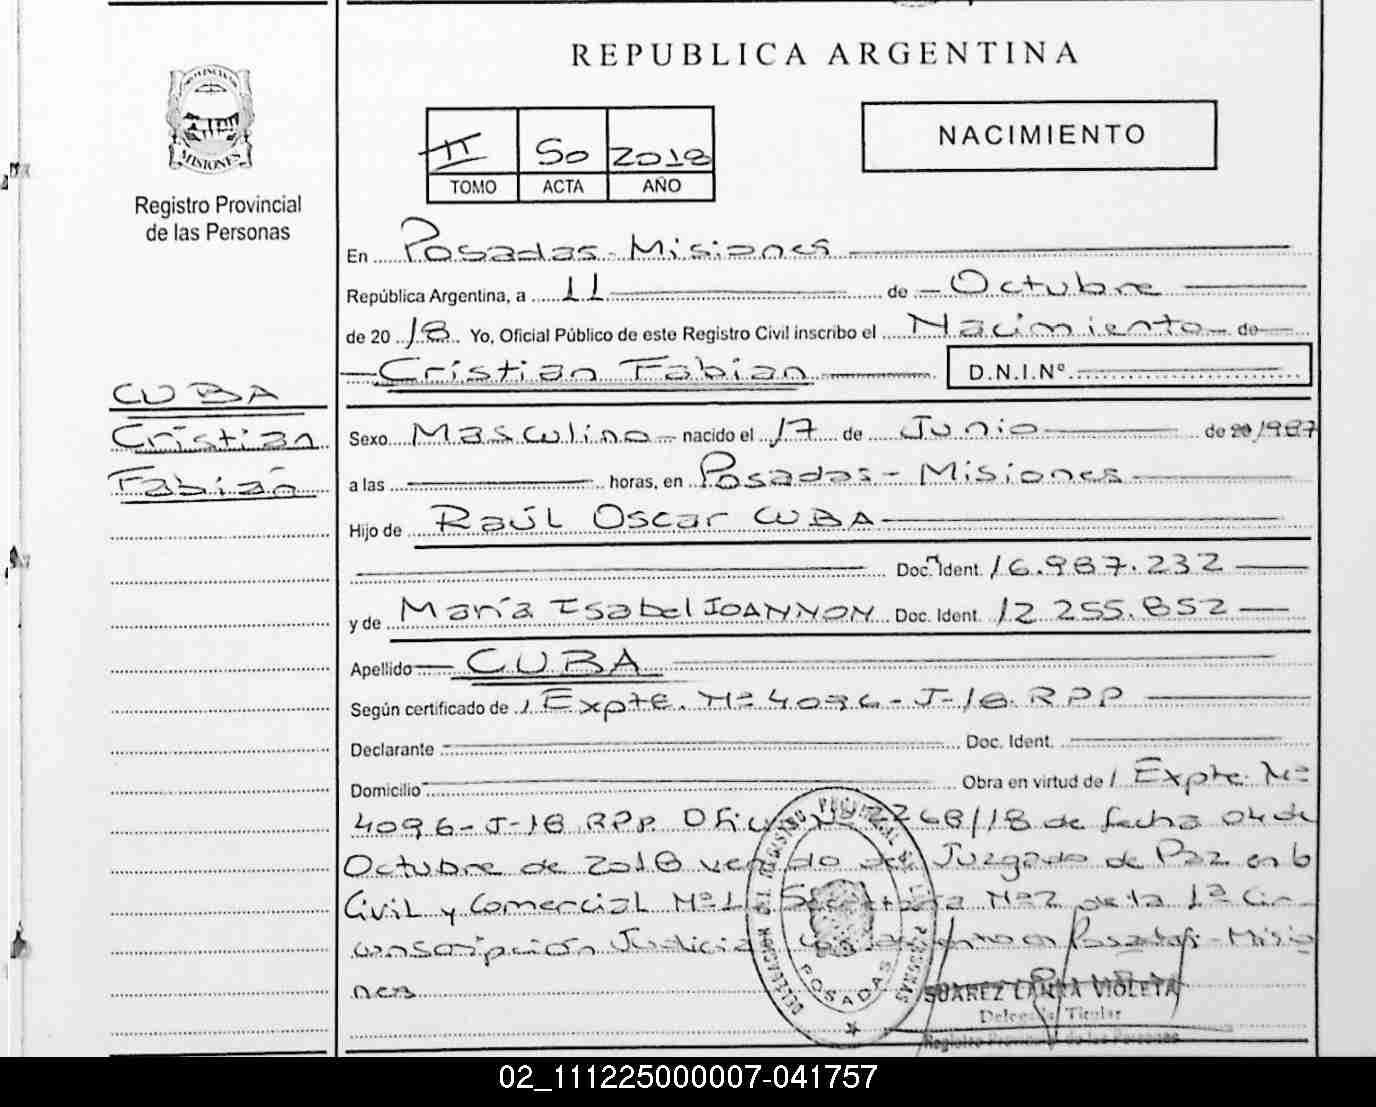 REPUBLICA ARGENTINA
PROVINCIA DE
MISIONES
Registro Provincial
de las Personas
II 50 2018
TOMO ACTA AÑO
NACIMIENTO
En Posadas - Misiones
República Argentina, a 11 de Octubre
de 20 18 Yo, Oficial Público de este Registro Civil inscribo el Nacimiento de
Cristian Fabian D.N.I.Nº
CUBA
Cristian
Fabián
Sexo Masculino nacido el 17 de Junio de 20 1987
a las horas, en Posadas - Misiones
Hijo de Raúl Oscar CUBA
Doc. Ident. 16.987.232
y de María Isabel IOANNON Doc. Ident. 12 255.852
Apellido CUBA
Según certificado de Expte. Nº 4096-J-18 RPP
Declarante Doc. Ident.
Domicilio Obra en virtud de Expte. Nº
4096-J-18 RPP. Oficio Nº 2268/18 de fecha 04 de
Octubre de 2018 del Juzgado de Paz en lo
Civil y Comercial Nº 1 Secretaría Nº 2 de la 1ª Cir-
cunscripción Judicial con asiento en Posadas - Misio
nes
DELEGACION REGISTRO PROVINCIAL DE LAS PERSONAS
POSADAS
SUAREZ VIOLETA
Delegada Titular
Registro Provincial de las Personas
02_111225000007-041757